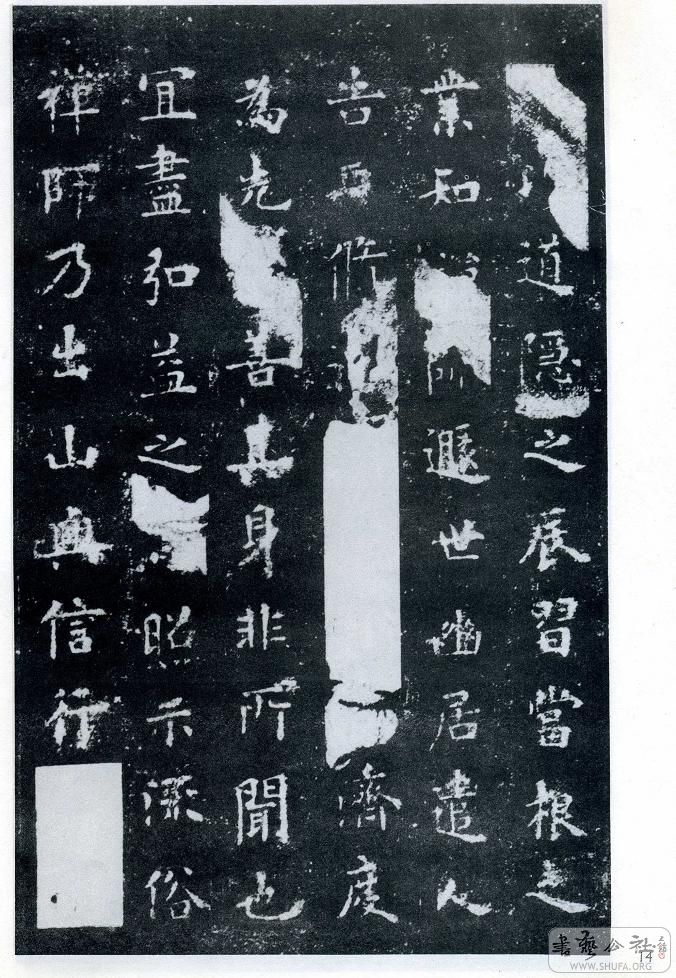 道隱之辰習當根之
業知所遯世幽居遣人
告曰脩濟度
為先善其身非所聞也
宜盡弘益之照示流俗
禪師乃出山與信行
書藝公社
WWW.SHUFA.ORG
14